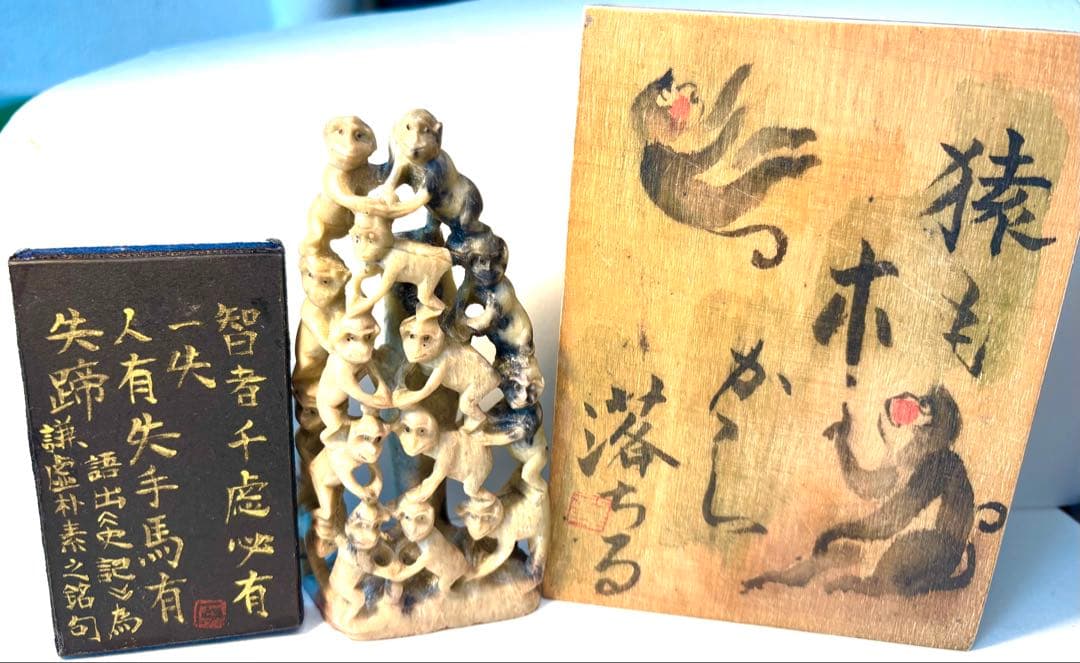 智者千虑必有
一失
人有失手馬有
失蹄
語出《史記》為
謙虛朴素之銘句
猿も
木
から
落ちる